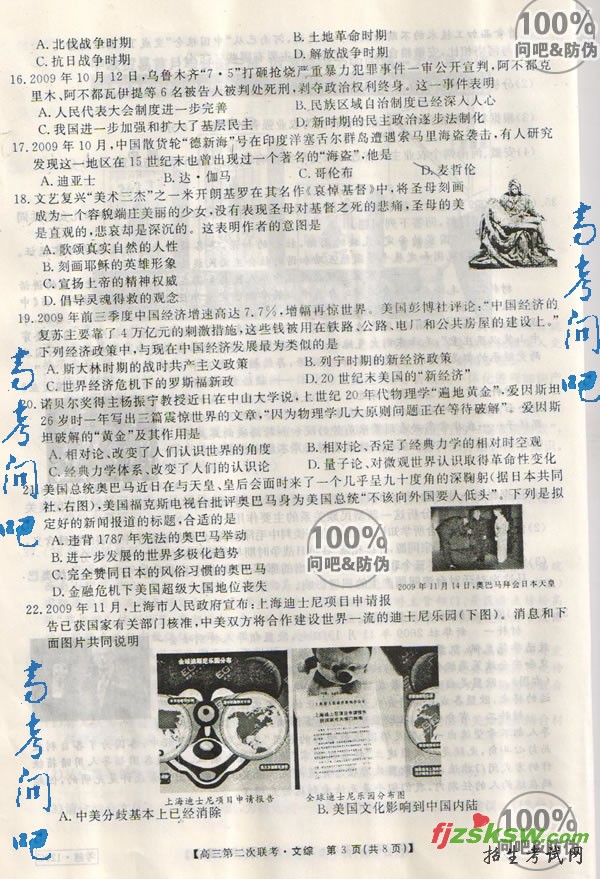 A.北伐战争时期 B.土地革命时期
C.抗日战争时期 D.解放战争时期
16.2009年10月12日,乌鲁木齐“7·5”打砸抢烧严重暴力犯罪事件一审公开宣判,阿不都克
里木、阿不都瓦伊提等6名被告人被判处死刑,剥夺政治权利终身。这一事件表明
A.人民代表大会制度进一步完善 B.民族区域自治制度已经深入人心
C.我国进一步加强和扩大了基层民主 D.新时期的民主政治逐步法制化
17.2009年10月,中国散货轮“德新海”号在印度洋塞舌尔群岛遭遇索马里海盗袭击,有人研究
发现这一地区在15世纪末也曾出现过一个著名的“海盗”,他是
A.迪亚士 B.达·伽马 C.哥伦布 D.麦哲伦
18.文艺复兴“美术三杰”之一米开朗基罗在其名作《哀悼基督》中,将圣母刻画
成为一个容貌端庄美丽的少女,没有表现圣母对基督之死的悲痛,圣母的美
是直观的,悲哀却是深沉的。这表明作者的意图是
A.歌颂真实自然的人性
B.刻画耶稣的英雄形象
C.宣扬上帝的精神权威
D.倡导灵魂得救的观念
19.2009年前三季度中国经济增速高达7.7%,增幅再惊世界。美国彭博社评论:“中国经济的
复苏主要靠了4万亿元的刺激措施,这些钱被用在铁路、公路、电厂和公共房屋的建设上。”
下列经济政策中,与现在中国经济发展最为类似的是
A.斯大林时期的战时共产主义政策 B.列宁时期的新经济政策
C.世界经济危机下的罗斯福新政 D.20世纪末美国的“新经济”
20.诺贝尔奖得主杨振宁教授近日在中山大学说,上世纪20年代物理学“遍地黄金”,爱因斯坦
26岁时一年写出三篇震惊世界的文章,“因为物理学几大原则问题正在等待破解”。爱因斯
坦破解的“黄金”及其作用是
A.相对论、改变了人们认识世界的角度 B.相对论、否定了经典力学的相对时空观
C.经典力学体系、改变了人们的认识论 D.量子论、对微观世界认识取得革命性变化
21.美国总统奥巴马近日在与天皇、皇后会面时来了一个几乎呈九十度角的深鞠躬(据日本共同
社,右图),美国福克斯电视台批评奥巴马身为美国总统“不该向外国要人低头”。下列是拟
定好的新闻报道的标题,合适的是
A.违背1787年宪法的奥巴马举动
B.进一步发展的世界多极化趋势
C.完全赞同日本的风俗习惯的奥巴马
D.金融危机下美国超级大国地位丧失
2009年11月14日,奥巴马拜会日本天皇
22.2009年11月,上海市人民政府宣布:上海迪士尼项目申请报
告已获国家有关部门核准,中美双方将合作建设世界一流的迪士尼乐园(下图)。消息和下
面图片共同说明
全球迪斯尼乐园分布
上海迪士尼项目申请报告 全球迪士尼乐园分布图
A.中美分歧基本上已经消除 B.美国文化影响到中国内陆
【高三第二次联考·文综 第3页(共8页)】
100%
问吧&防伪
100%
问吧&防伪
100%
高考问吧
高考问吧
高考问吧
fjzsksw.com
招生考试网